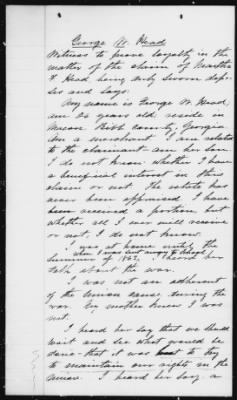 George W. Head
Witness to prove loyalty in the
matter of the claim of Martha
F. Head, being duly sworn depo-
ses and says:
My name is George W. Head,
am 36 years old, reside in
Macon, Bibb County, Georgia
am a merchant, am related
to the claimant am her son.
I do not know whether I have
a beneficial interest in this
claim or not. The estate has
never been appraised I have
been received a portion but
whether all I ever will receive
or not, I do not know.
I was at home until the
summer of 1862, when I went away to school I heard her
talk about the war.
I was not an adherent
of the Union cause during the
war. My mother knew I was
not.
I heard her say that we should
wait and see what would be
done - that it was best to try
to maintain our rights in the
Union. I heard her say, a